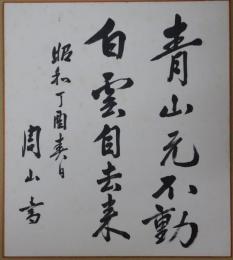 青山元不動
白雲自去来
昭和丁酉春日